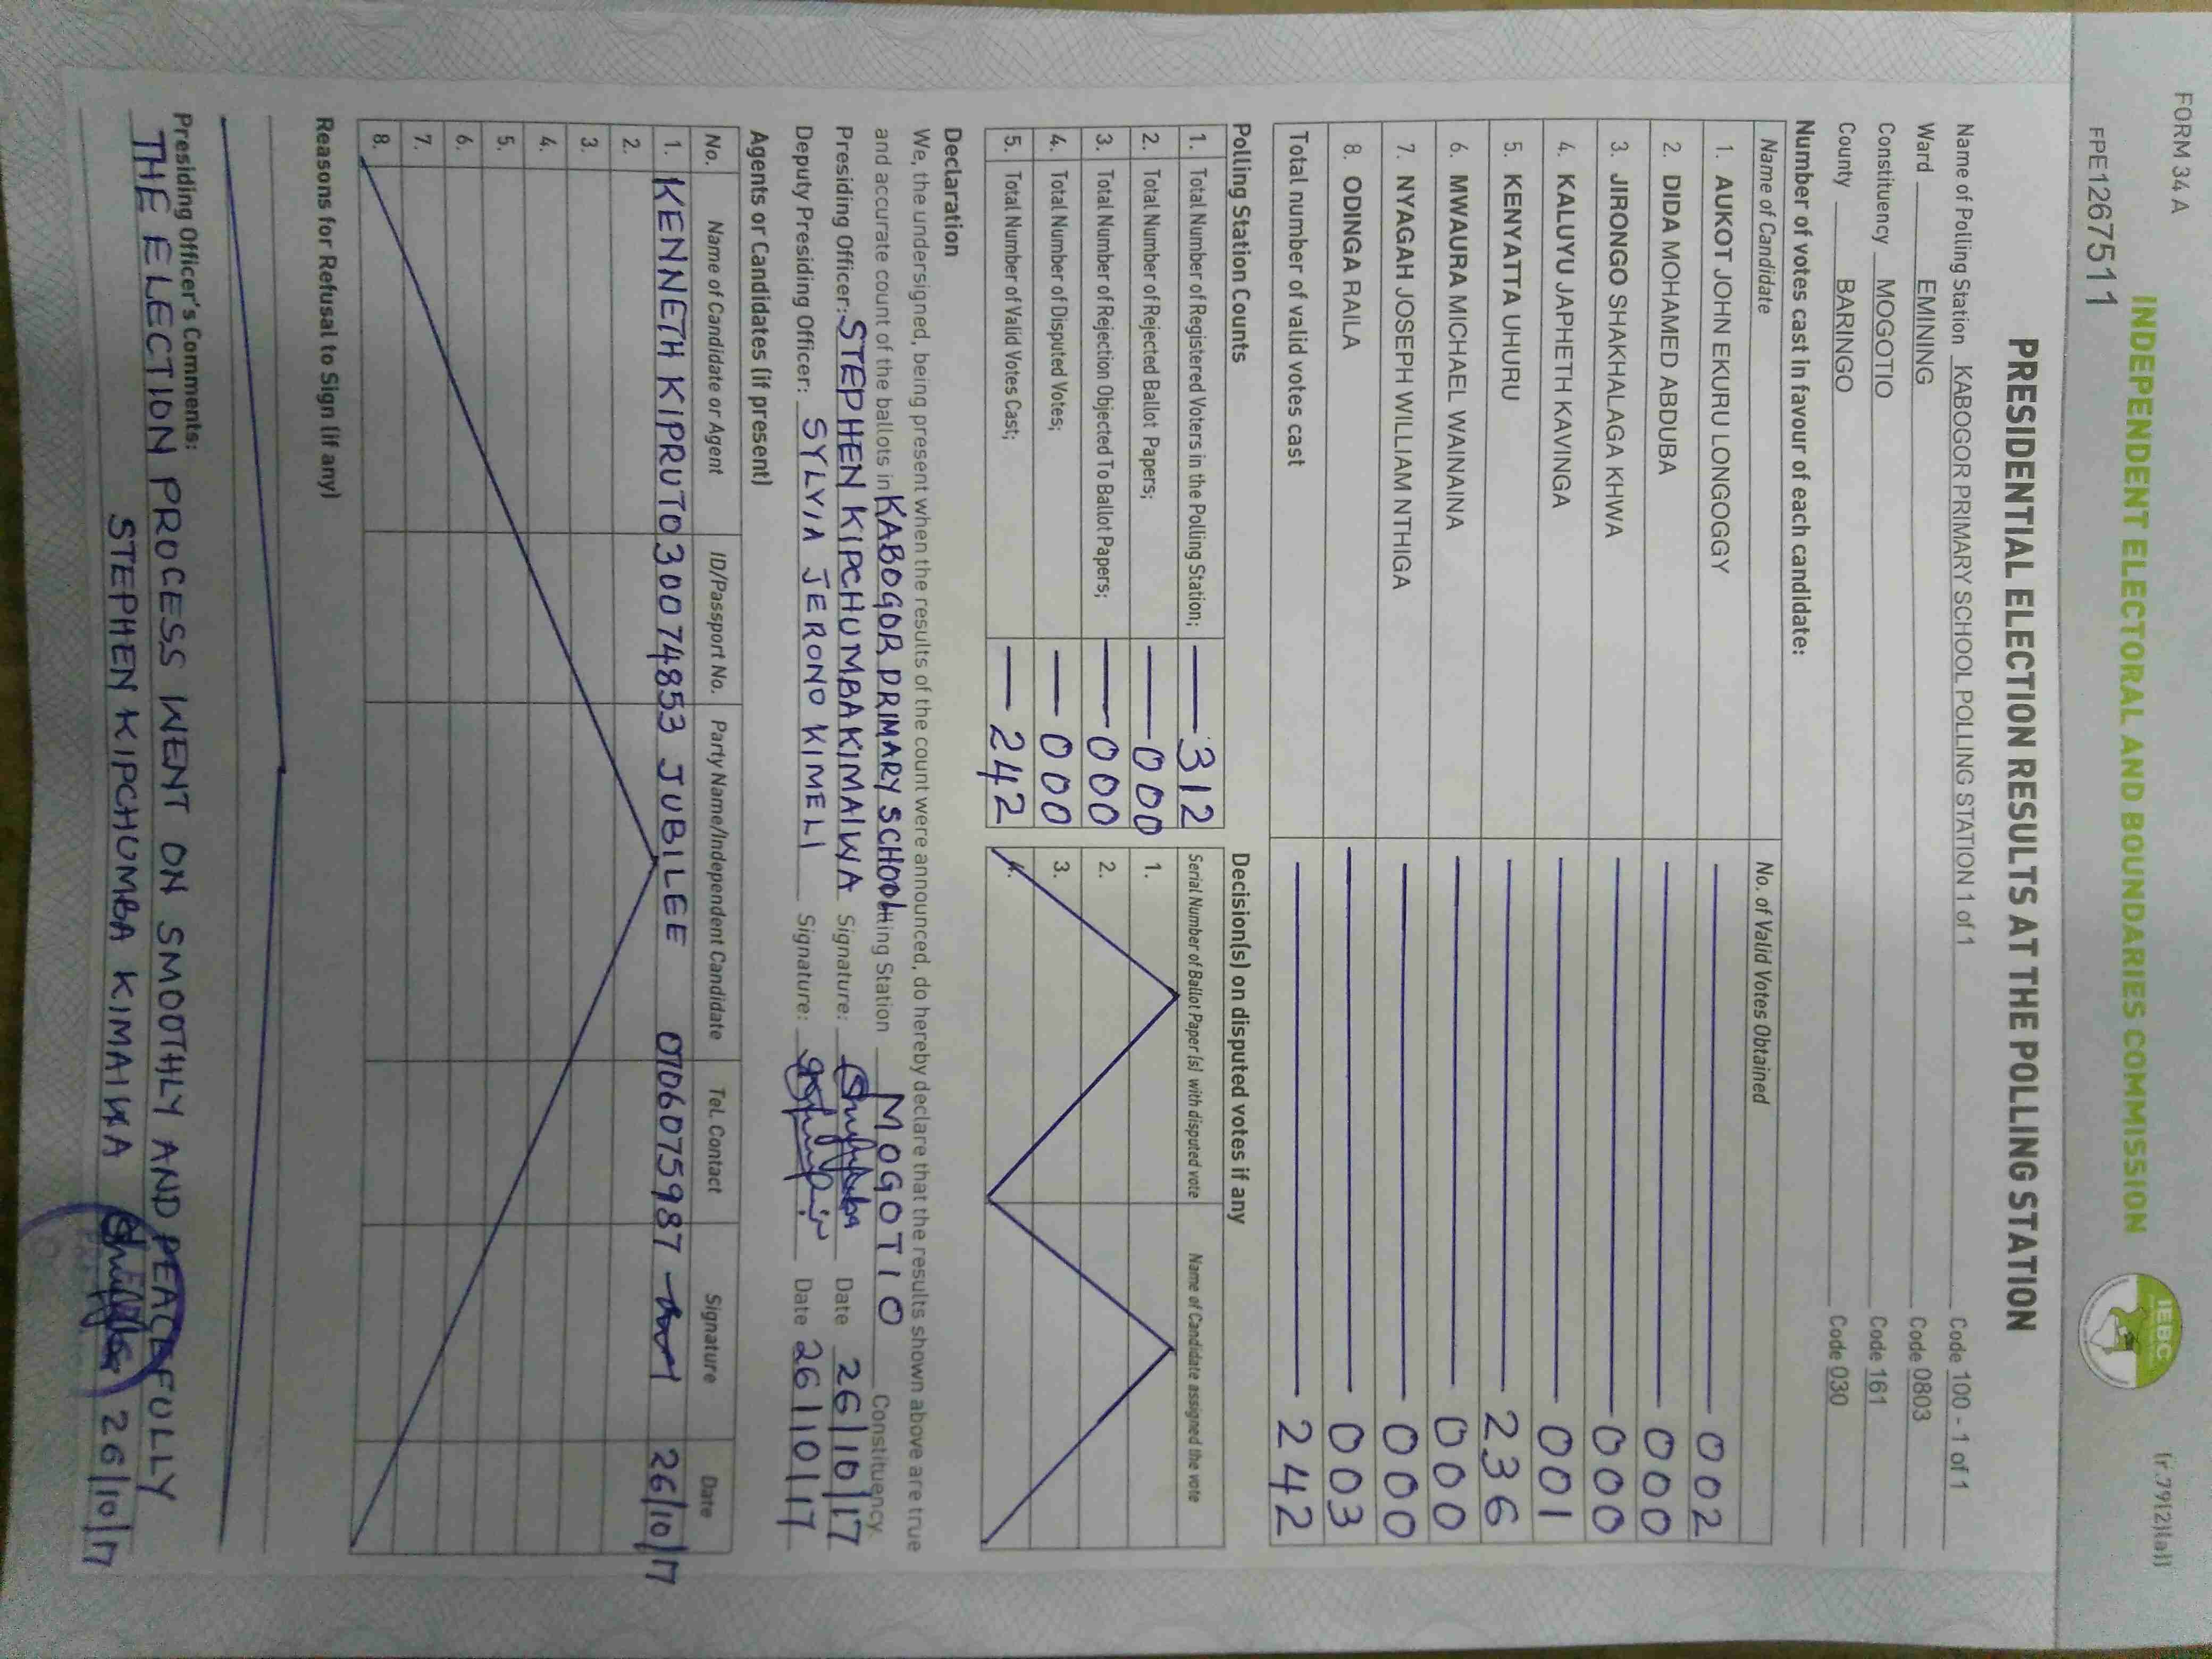 FORM 34 A
(r.79(2)(a))
INDEPENDENT ELECTORAL AND BOUNDARIES COMMISSION
IEBC
FPE1267511
PRESIDENTIAL ELECTION RESULTS AT THE POLLING STATION
Name of Polling Station KABOGOR PRIMARY SCHOOL POLLING STATION 1 of 1 Code 100 - 1 of 1
Ward EMINING Code 0803
Constituency MOGOTIO Code 161
County BARINGO Code 030
Number of votes cast in favour of each candidate:
Name of Candidate No. of Valid Votes Obtained
1. AUKOT JOHN EKURU LONGOGGY 002
2. DIDA MOHAMED ABDUBA 000
3. JIRONGO SHAKHALAGA KHWA 000
4. KALUYU JAPHETH KAVINGA 001
5. KENYATTA UHURU 236
6. MWAURA MICHAEL WAINAINA 000
7. NYAGAH JOSEPH WILLIAM NTHIGA 000
8. ODINGA RAILA 003
Total number of valid votes cast 242
Polling Station Counts
1. Total Number of Registered Voters in the Polling Station; 312
2. Total Number of Rejected Ballot Papers; 000
3. Total Number of Rejection Objected To Ballot Papers; 000
4. Total Number of Disputed Votes; 000
5. Total Number of Valid Votes Cast; 242
Decision(s) on disputed votes if any
Serial Number of Ballot Paper (s) with disputed vote Name of Candidate assigned the vote
1.
2.
3.
4.
Declaration
We, the undersigned, being present when the results of the count were announced, do hereby declare that the results shown above are true
and accurate count of the ballots in KABOGOR PRIMARY SCHOOL Polling Station MOGOTIO Constituency.
Presiding Officer: STEPHEN KIPCHUMBA KIMAIWA Signature: Date 26/10/17
Deputy Presiding Officer: SYLVIA JERONO KIMELI Signature: Date 26/10/17
Agents or Candidates (if present)
No. Name of Candidate or Agent ID/Passport No. Party Name/Independent Candidate Tel. Contact Signature Date
1. KENNETH KIPRUTO 30074853 JUBILEE 0706075987 26/10/17
2.
3.
4.
5.
6.
7.
8.
Reasons for Refusal to Sign (if any)
Presiding Officer's Comments:
THE ELECTION PROCESS WENT ON SMOOTHLY AND PEACEFULLY
STEPHEN KIPCHUMBA KIMAIWA 26/10/17